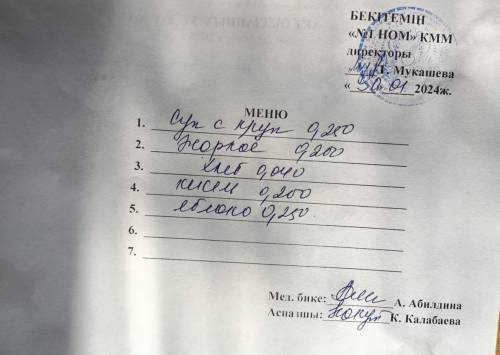 БЕКІТЕМІН
«№1 НОМ» КММ
директоры
Т. Мукашева
«30» 01 2024ж.
МЕНЮ
1. Суп с круп 0,250
2. Жаркое 0,200
3. хлеб 0,040
4. кисель 0,200
5. яблоко 0,250
6.
7.
Мед. бике: А. Абилдина
Аспазшы: К. Калабаева